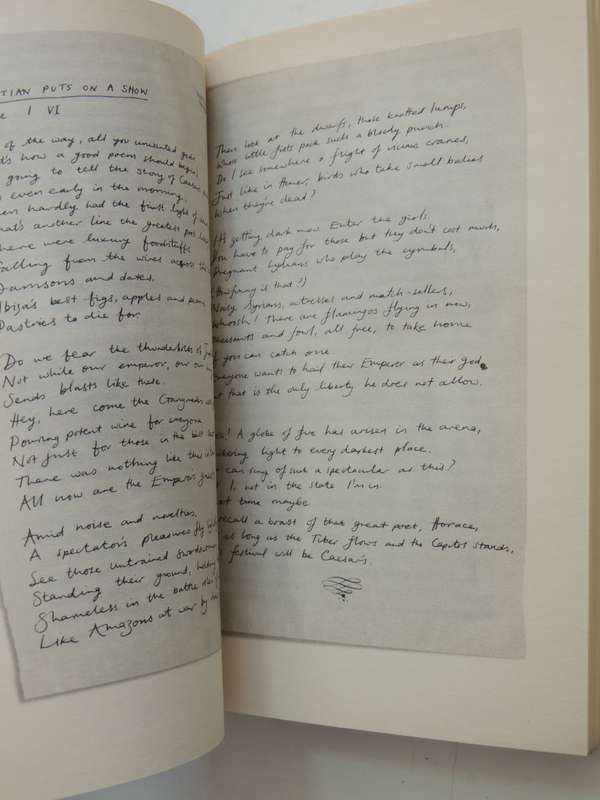 TIAN PUTS ON A SHOW
I VI
of the way, all you uncultured
how a good poem should begin,
going to tell the story of Caesar's
even early in the morning.
hardly had the first light of
another line the greatest poet
here were luxury foodstuffs
falling from the wires across the
Damsons and dates,
Ibiza's best figs, apples and pears
Pastries to die for.
Do we fear the thunderbolts of
Not while our emperor, our own
Sends blasts like these.
Hey, here come the Ganymedes
Pouring potent wine for everyone
Not just for those in the best
There was nothing like this in
All now are the Emperor's
Amid noise and novelties,
A spectator's pleasures fly
See those untrained swordswomen
Standing their ground, holding
Shameless in the battle
Like Amazons at war by
Then look at the dwarfs, those knotted lumps,
Whose little fists pack such a bloody punch.
Do I see somewhere a fright of vicious cranes,
Just like in Homer, birds who take small babies
When they're dead?
It's getting dark now. Enter the girls.
You have to pay for those but they don't cost much,
Pregnant Lydians who play the cymbals,
(How funny is that?)
Noisy Syrians, actresses and match-sellers,
Whoosh! There are flamingos flying in now,
Pheasants and fowl, all free, to take home
If you can catch one.
Everyone wants to hail their Emperor as their god,
that is the only liberty he does not allow.
! A globe of fire has arisen in the arena,
light to every darkest place.
can sing of such a spectacular as this?
I, not in the state I'm in.
time maybe.
recall a boast of that great poet, Horace,
as long as the Tiber flows and the Capitol stands,
festival will be Caesar's.